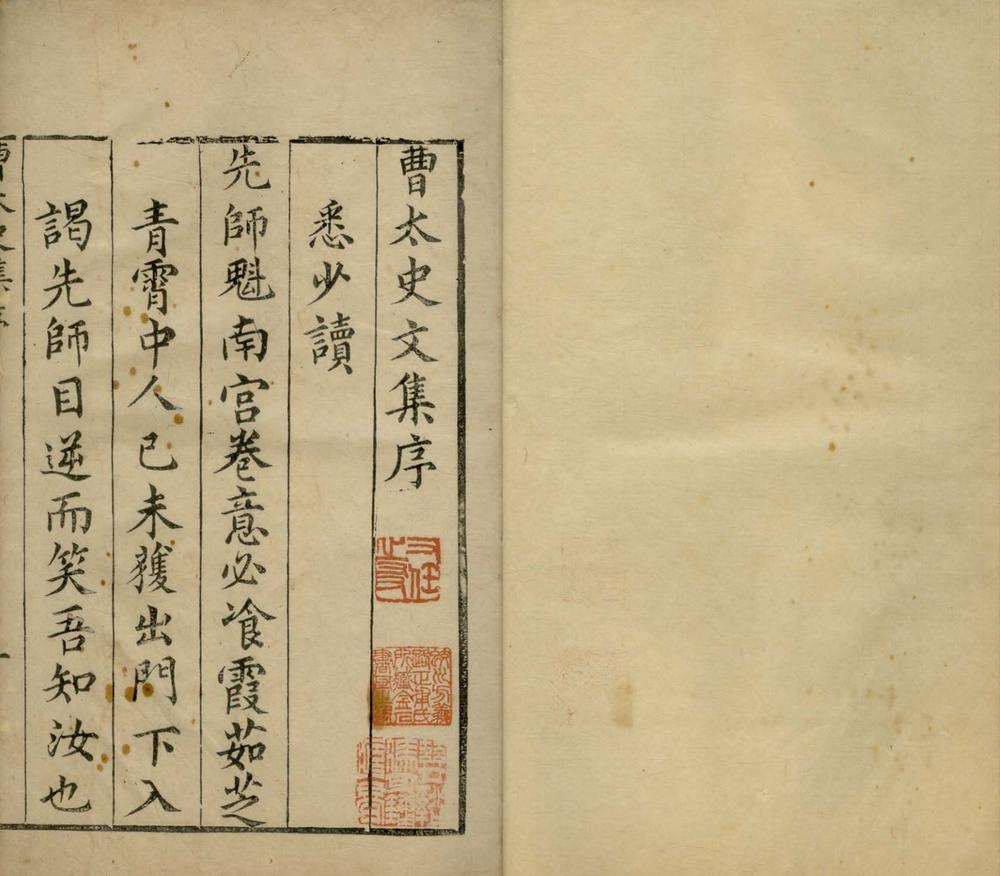 曹太史文集序
悉少讀
先師魁南宫卷意必飡霞茹芝
青霄中人已未獲出門下入
謁先師目逆而笑吾知汝也
曹太史集序
一